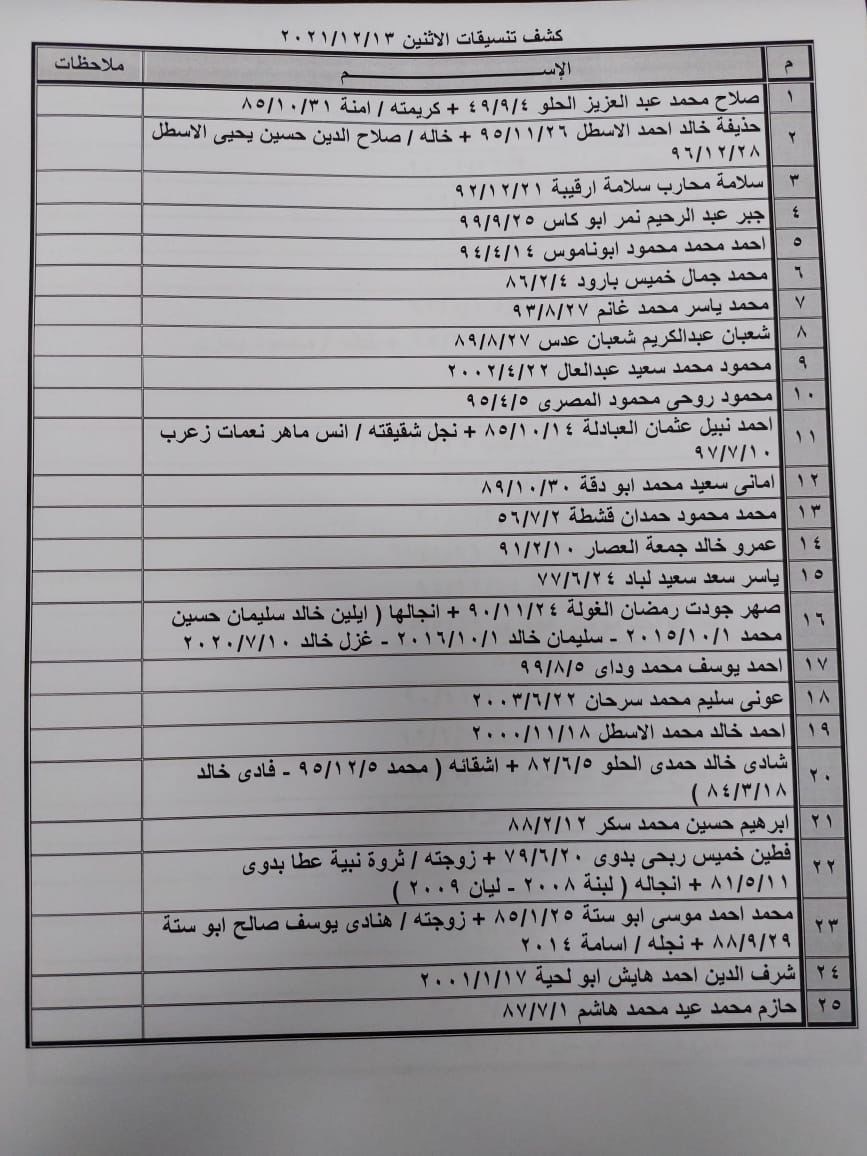 كشف تنسيقات الاثنين ٢٠٢١/١٢/١٣
م الإســـــــــــــم ملاحظات
١ صلاح محمد عبد العزيز الحلو ٤٩/٩/٤ + كريمته / امنة ٨٥/١٠/٣١
٢ حذيفة خالد احمد الاسطل ٩٥/١١/٢٦ + خاله / صلاح الدين حسين يحيى الاسطل
٩٦/١٢/٢٨
٣ سلامة محارب سلامة ارقيبة ٩٢/١٢/٢١
٤ جبر عبد الرحيم نمر ابو كاس ٩٩/٩/٢٥
٥ احمد محمد محمود ابوناموس ٩٤/٤/١٤
٦ محمد جمال خميس بارود ٨٦/٢/٤
٧ محمد ياسر محمد غانم ٩٣/٨/٢٧
٨ شعبان عبدالكريم شعبان عدس ٨٩/٨/٢٧
٩ محمود محمد سعيد عبدالعال ٢٠٠٢/٤/٢٢
١٠ محمود روحى محمود المصرى ٩٥/٤/٥
١١ احمد نبيل عثمان العبادلة ٨٥/١٠/١٤ + نجل شقيقته / انس ماهر نعمات زعرب
٩٧/٧/١٠
١٢ امانى سعيد محمد ابو دقة ٨٩/١٠/٣٠
١٣ محمد محمود حمدان قشطة ٥٦/٧/٢
١٤ عمرو خالد جمعة العصار ٩١/٢/١٠
١٥ ياسر سعد سعيد لباد ٧٧/٦/٢٤
١٦ صهر جودت رمضان الغولة ٩٠/١١/٢٤ + انجالها ( ايلين خالد سليمان حسين
محمد ٢٠١٥/١٠/١ - سليمان خالد ٢٠١٦/١٠/١ - غزل خالد ٢٠٢٠/٧/١٠
١٧ احمد يوسف محمد وداى ٩٩/٨/٥
١٨ عونى سليم محمد سرحان ٢٠٠٣/٦/٢٢
١٩ احمد خالد محمد الاسطل ٢٠٠٠/١١/١٨
٢٠ شادى خالد حمدى الحلو ٨٢/٦/٥ + اشقائه ( محمد ٩٥/١٢/٥ - فادى خالد
٨٤/٣/١٨ )
٢١ ابرهيم حسين محمد سكر ٨٨/٢/١٢
٢٢ فطين خميس ربحى بدوى ٧٩/٦/٢٠ + زوجته / ثروة نبية عطا بدوى
٨١/٥/١١ + انجاله ( لبنة ٢٠٠٨ - ليان ٢٠٠٩ )
٢٣ محمد احمد موسى ابو ستة ٨٥/١/٢٥ + زوجته / هنادى يوسف صالح ابو ستة
٨٨/٩/٢٩ + نجله / اسامة ٢٠١٤
٢٤ شرف الدين احمد هايش ابو لحية ٢٠٠١/١/١٧
٢٥ حازم محمد عيد محمد هاشم ٨٧/٧/١